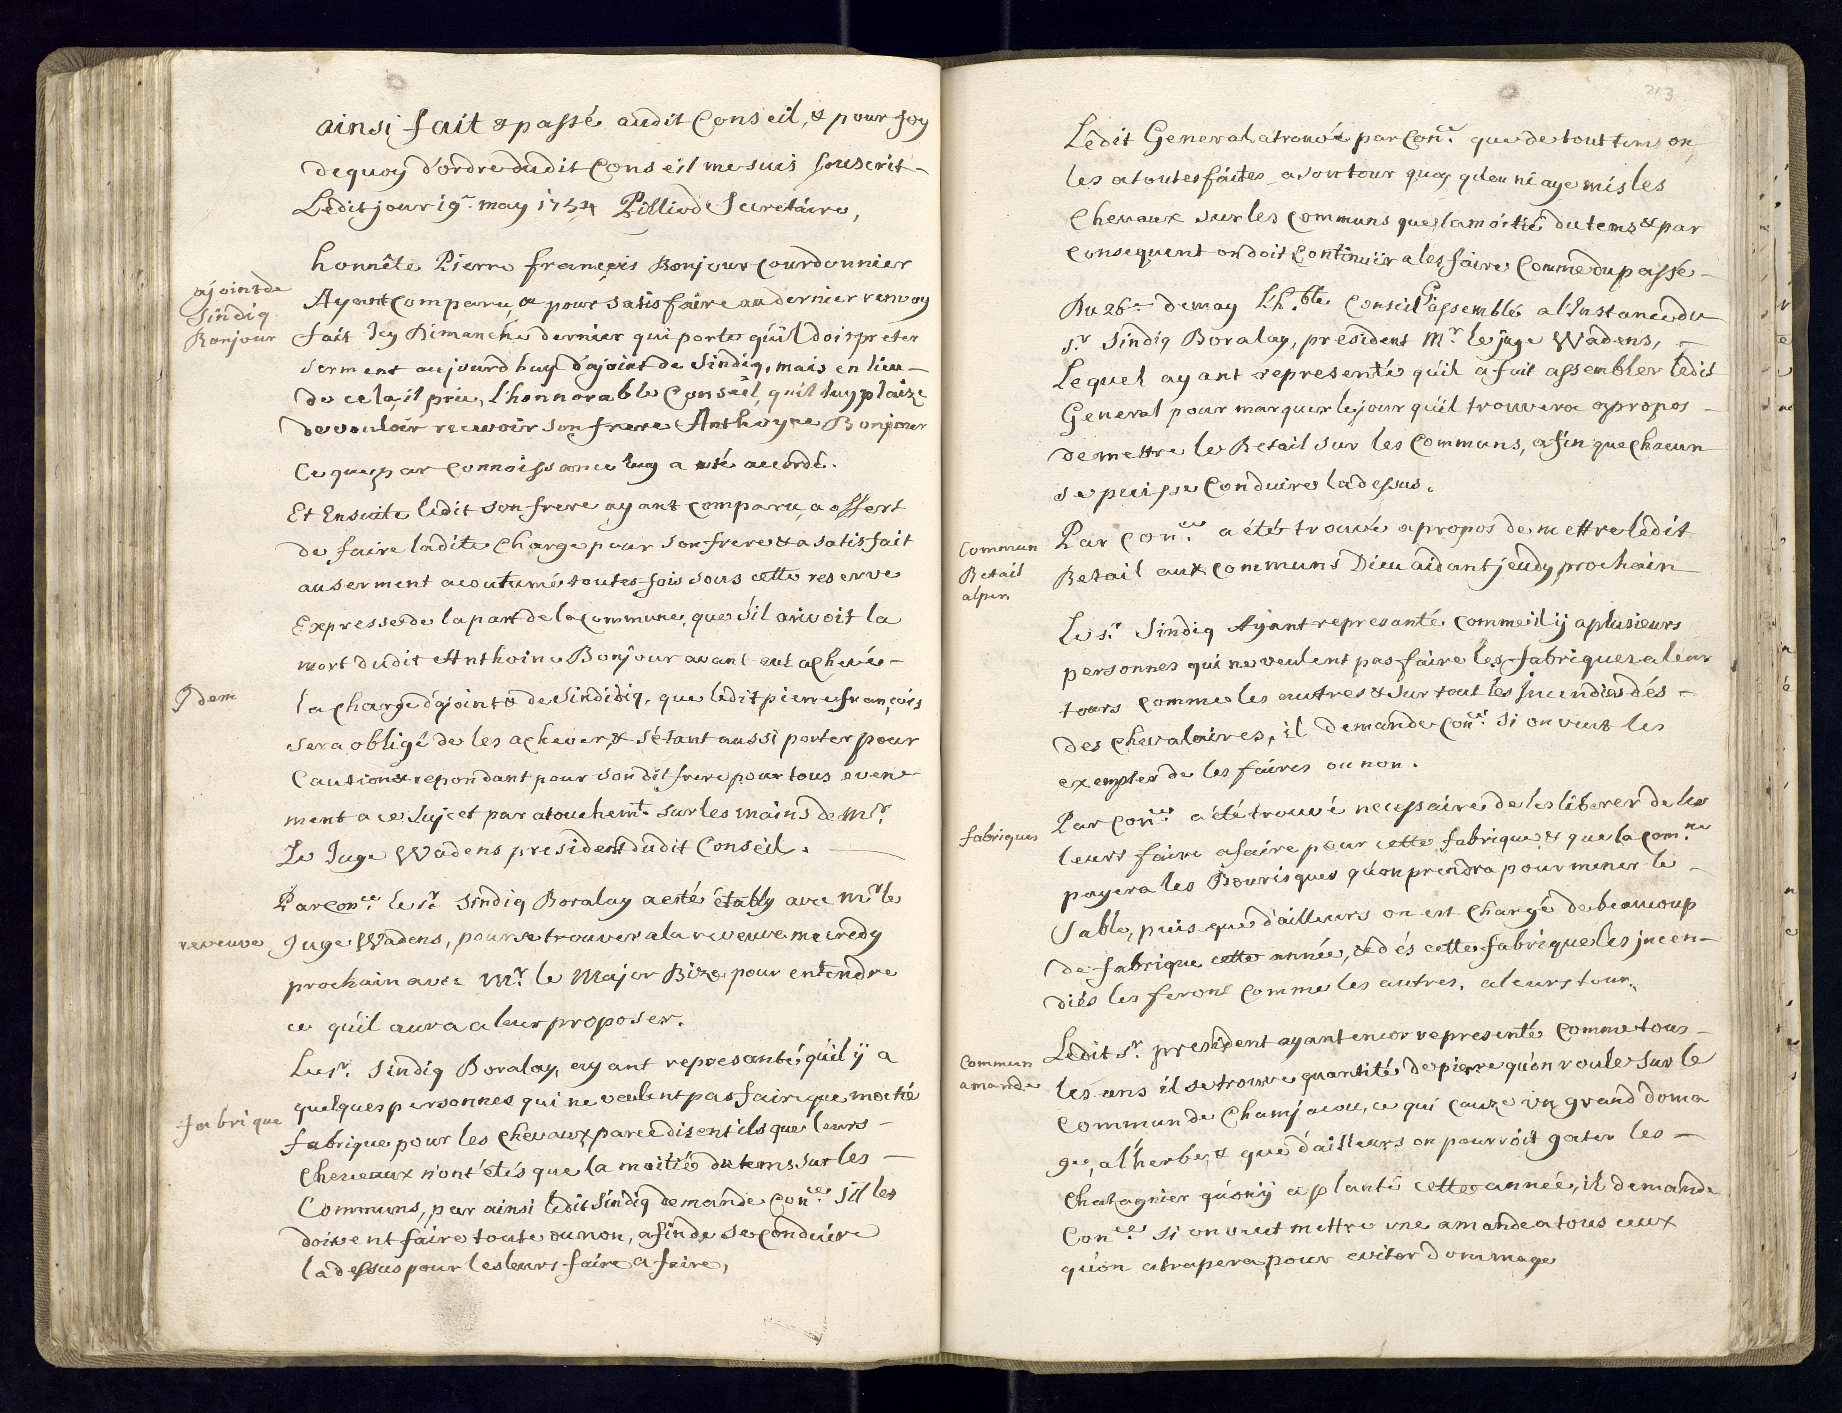 ainsi fait & passé audit Conseil, & pour foy
dequoy d'ordre dudit Conseil me suis souscrit
Lédit jour 19e may 1754 Pilliod Secretaire,
honnête Pierre françois Bonjour Courdonnier
ajoint de
Sindiq
Bonjour
Ayant Comparu, pour satisfaire au dernier renvoy
fait Icy Dimanche dernier qui porte qu'il doit preter
serment aujourdhuy d'ajoint de Sindiq, mais en lieu
de cela, il prie, L'honnorable Conseil, qu'il luy plaize
de vouloir recevoir son frere Anthoyne Bonjour
Ce que par Connoissance luy a été accordé.
Et Ensuite lédit son frere ayant comparu, a offert
de faire ladite Charge pour son frere & a satisfait
au serment acoutumé toutes-fois sous cette reserve
Expresse de la part de la Commune, que s'il arivoit la
mort dudit Anthoine Bonjour avant achevé
Idem
la charge d'ajoint de Sindidiq, que lédit pierre françois
sera obligé de les achever, & s'étant aussi porter pour
Caution & repondant pour son dit frere pour tous evene
ment a ce sujet par atouchemt. sur les mains de Mr.
Le Juge Wadens president dudit Conseil.
Par conce. le sr. Sindiq Boralay a esté étably avec Mr. le
reveuve
Juge Wadens, pour se trouver a la reveuve mecredy
prochain avec Mr. le Major Bize, pour entendre
ce qu'il aura a leur proposer.
Le sr. Sindiq Boralay, ayant represanté qu'il ÿ a
quelques personnes qui ne veulent pas faire que moitié
fabrique
fabrique pour les Chevaux parce disent ils que leurs
Cheveaux n'ont étés que la moitié du tems sur les
Communs, par ainsi lédit Sindiq demande conce. s'il les
doivent faire toute ou non, afin de se conduire
la dessus pour les leurs faire a faire,
213
Lédit General a trouvé par Conce. que de tout tems on
les a toutes faites a son tour quoy qu'on ni aye mis les
Chevaux sur les communs que la moitié du tems & par
consequent on doit Continuïr a les faire Comme du passé
Du 26e. de may L'h.ble Conseil assemblé a l'Instance du
sr. Sindiq Boralay, président Mr. le juge Wadens,
Lequel ayant representé qu'il a fait assembler lédit
General pour marquer le jour qu'il trouvera apropos
de mettre le Betail sur les Communs, afin que Chacun
se puisse Conduire la dessus.
Commun
Betail
alper
Par conce. a été trouvé apropos de mettre lédit
Betail aux communs Dieu aidant jeudy prochain
Le sr. Sindiq Ayant represanté comme il ÿ a plusieurs
personnes qui ne veulent pas faire les fabriques a leur
tours comme les autres & sur tout les Incendiés dés
des chevalaires, il demande Conce. si on veut les
exempter de les faires ou non.
fabriques
Par Conce. a été trouvé necessaire de les liberer de les
leurs faire a faire pour cette fabrique, & que la comne
payera les Bourisques qu'on prendra pour mener le
Sable, puis que d'ailleurs on est chargé de beaucoup
de fabrique cette année, & dés cette fabrique les jncen-
diés les feront comme les autres, a leurs tour.
Commun
amande
Lédit sr. president ayant encor representé comme tous
les ans il se trouve quantité de pierre qu'on roule sur le
commun de Chamjacou, ce qui cauze un grand doma
ge, a l'herbe, & que d'ailleurs on pourroit gater les
Chatagnier qu'on ÿ a planté cette année, il demande
Conce. si on veut mettre une amande a tous ceux
qu'on atrapera pour eviter dommage